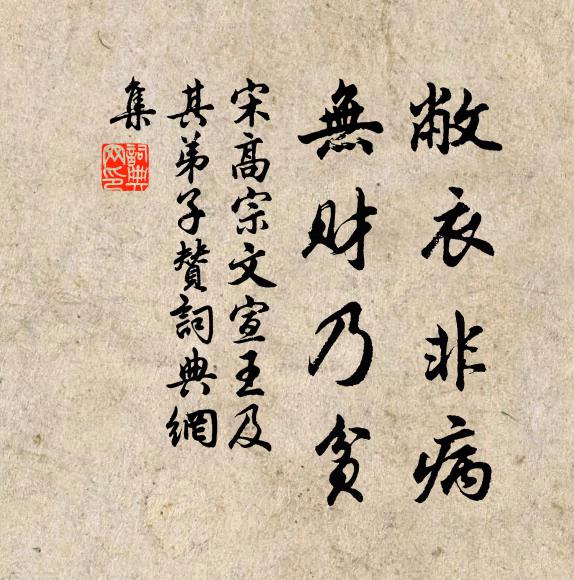 敝衣非病
無財乃貧
宋高宗文宣王及
其弟子赞詞典網
集
詞典網印